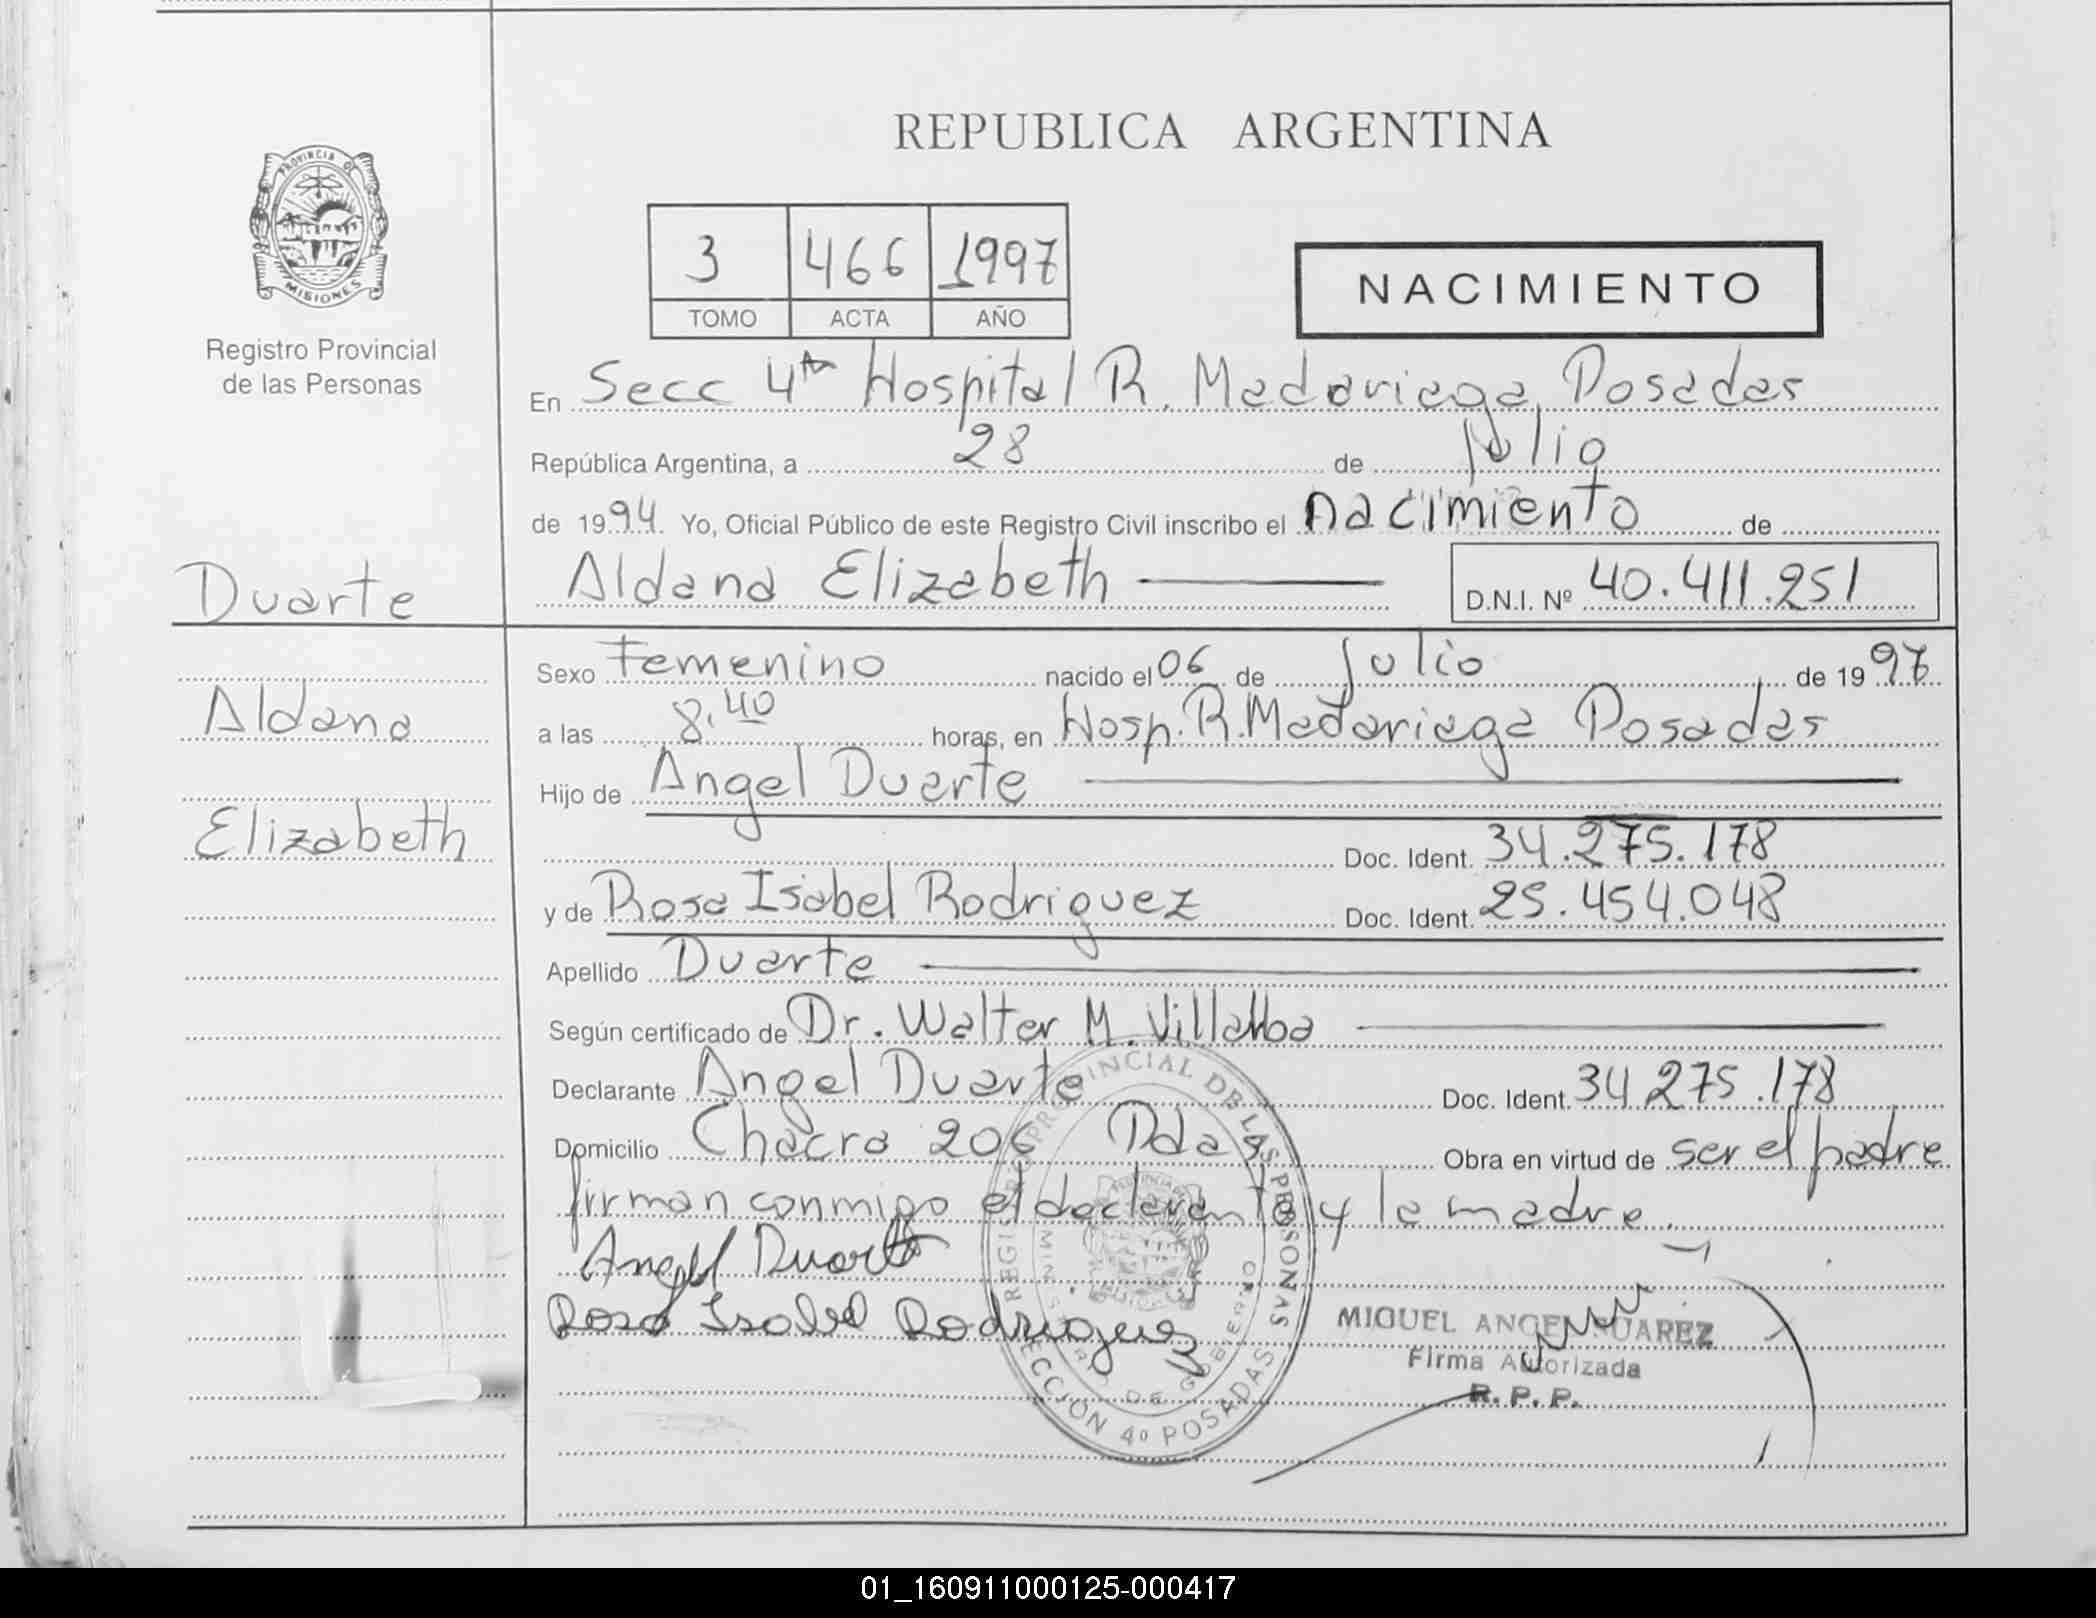 REPUBLICA ARGENTINA
PROVINCIA DE
MISIONES
Registro Provincial
de las Personas
3 466 1997
TOMO ACTA AÑO
NACIMIENTO
En Secc 4ta Hospital R. Madariaga, Posadas
República Argentina, a 28 de julio
de 1994. Yo, Oficial Público de este Registro Civil inscribo el nacimiento de
Duarte
Aldana Elizabeth D.N.I. Nº 40.411.251
Sexo Femenino nacido el 06 de Julio de 1997
Aldana
a las 8.40 horas, en Hosp. R. Madariaga Posadas
Hijo de Angel Duarte
Elizabeth
Doc. Ident. 34.275.178
y de Rosa Isabel Rodriguez Doc. Ident. 25.454.048
Apellido Duarte
Según certificado de Dr. Walter M. Villalba
Declarante Angel Duarte Doc. Ident. 34 275.178
Domicilio Chacra 206 Pdas Obra en virtud de ser el padre
firman conmigo el declarante y la madre.
Angel Duarte
Rosa Isabel Rodriguez
REGISTRO PROVINCIAL DE LAS PERSONAS
MINISTERIO DE GOBIERNO
SECCION 4º POSADAS
MIGUEL ANGEL SUAREZ
Firma Autorizada
R. P. P.
01_160911000125-000417